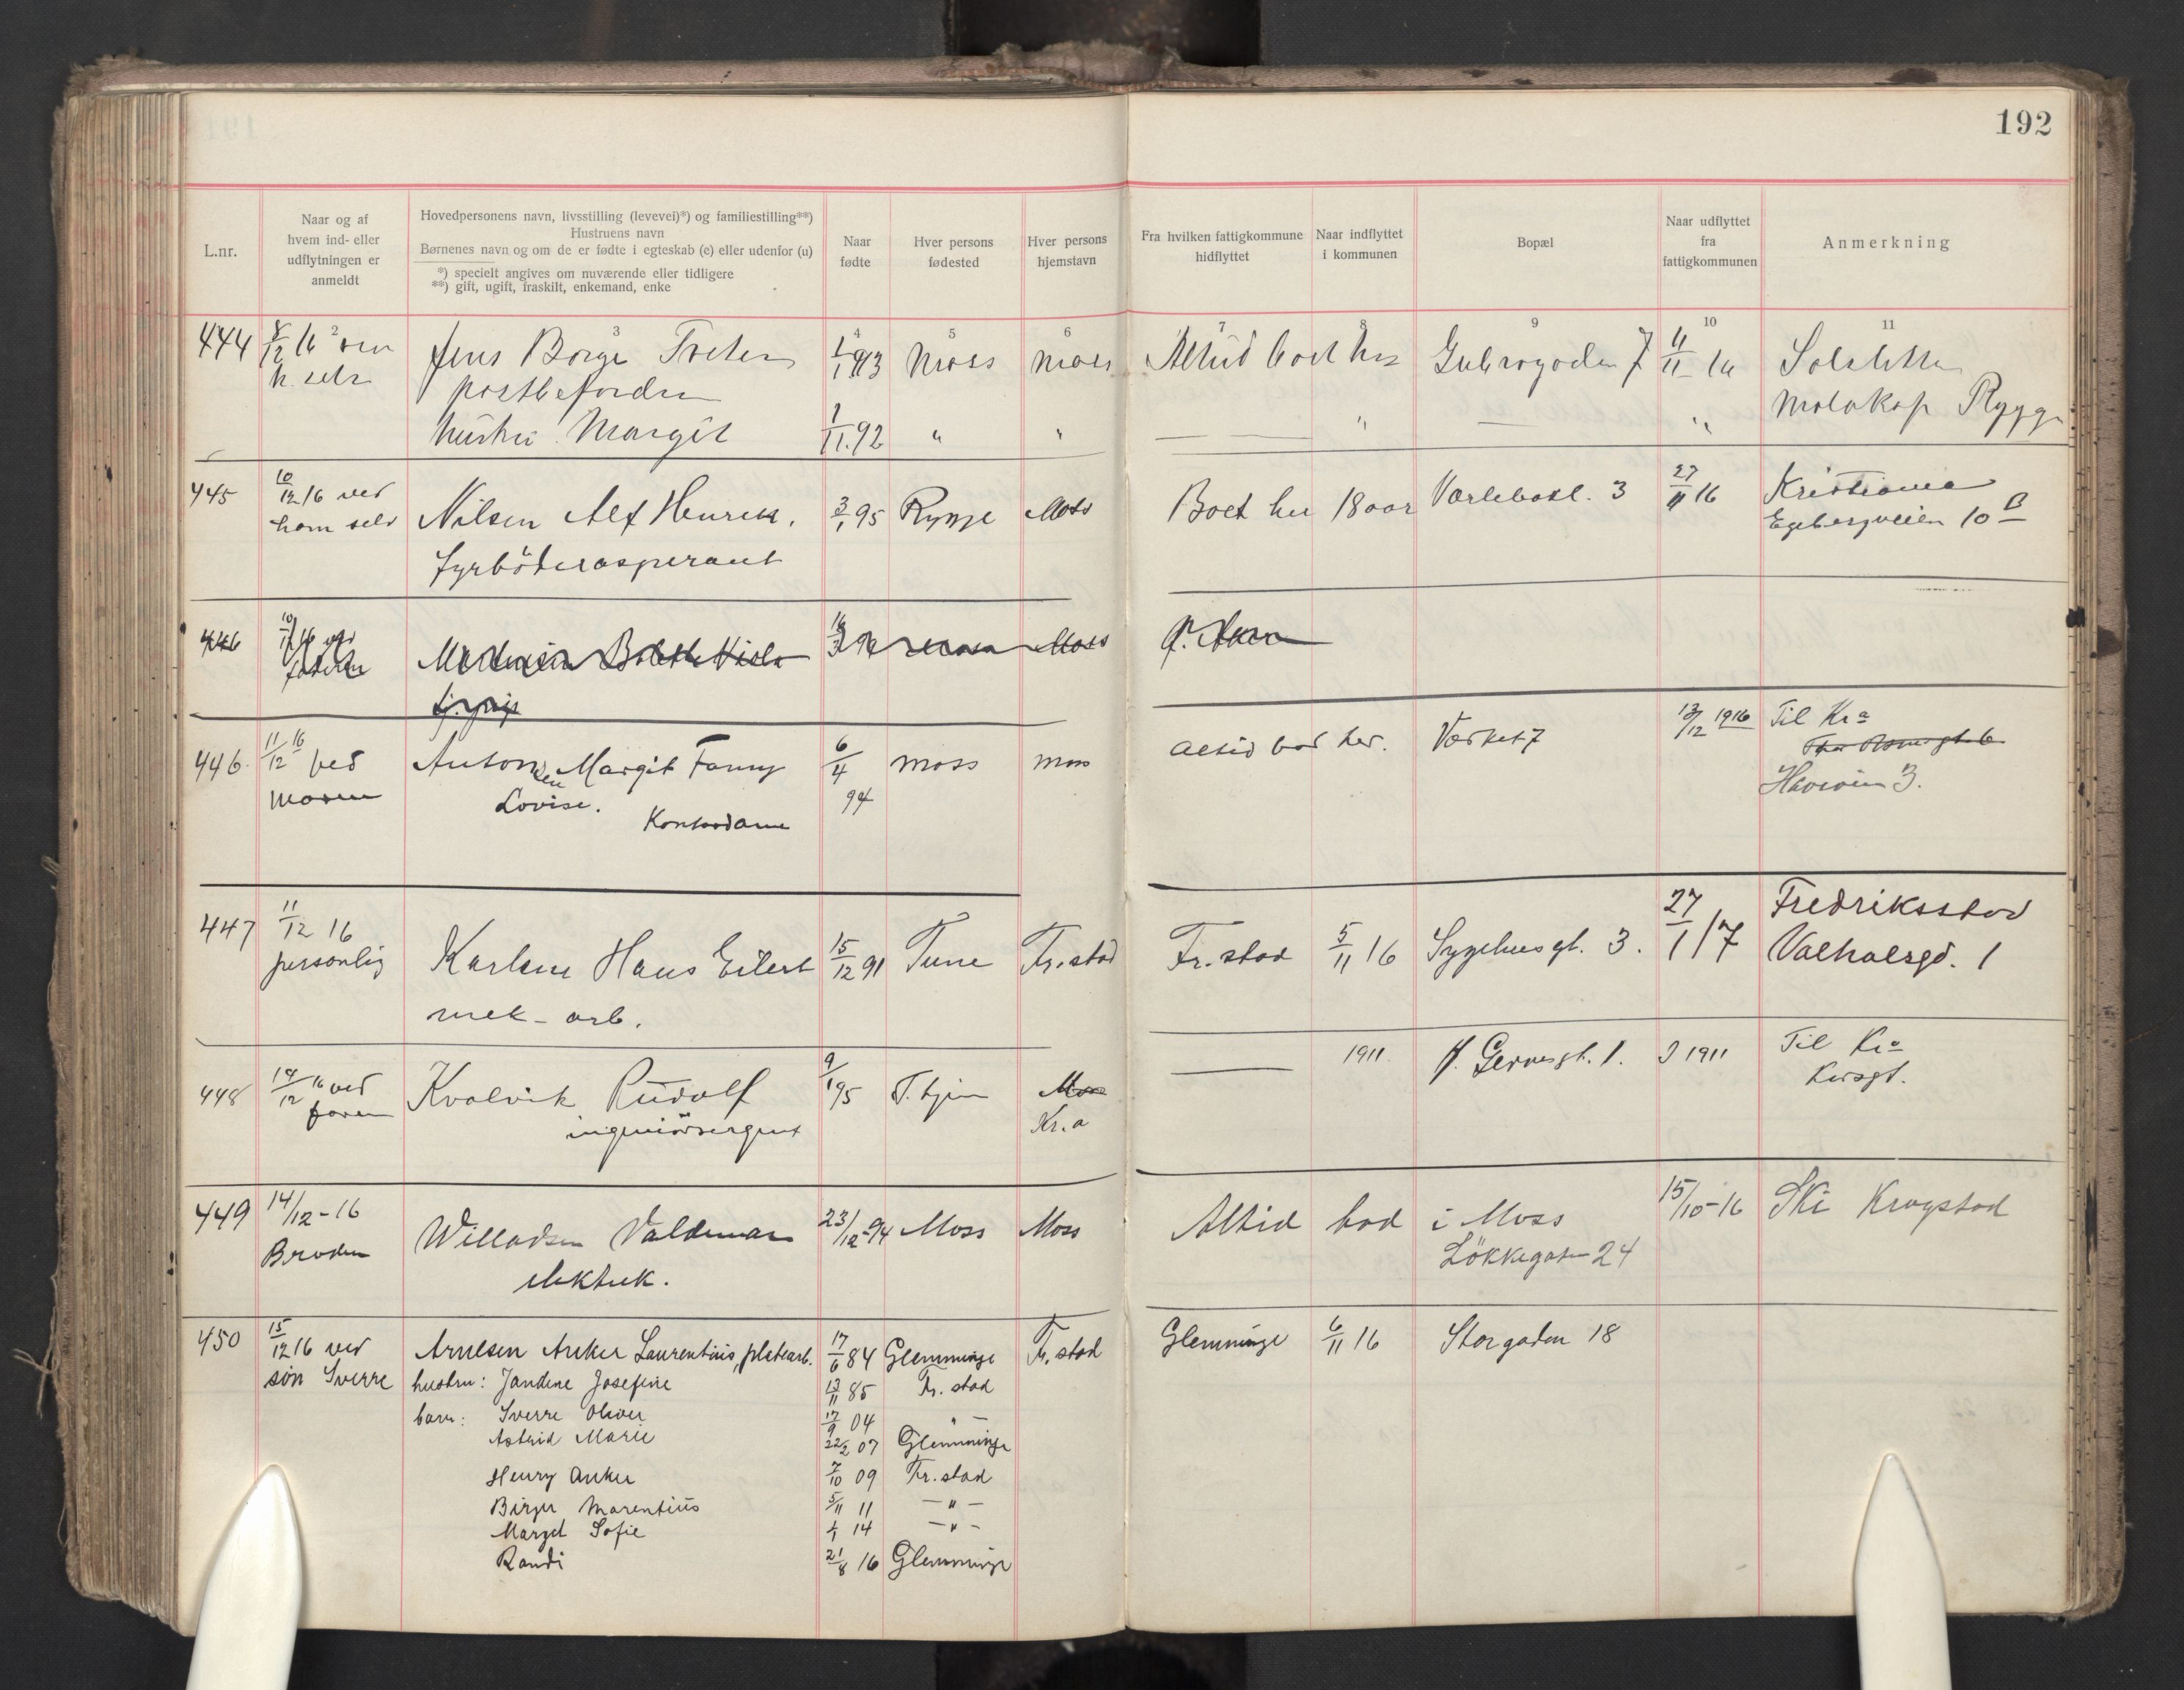 192
L.nr.
Naar og af
hvem ind- eller
udflytningen er
anmeldt
Hovedpersonens navn, livsstilling (levevei)*) og familiestilling**)
Hustruens navn
Børnenes navn og om de er fødte i egteskab (e) eller udenfor (u)
*) specielt angives om nuværende eller tidligere
**) gift, ugift, fraskilt, enkemand, enke
Naar
fødte
Hver persons
fødested
Hver persons
hjemstavn
Fra hvilken fattigkommune
hidflyttet
Naar indflyttet
i kommunen
Bopæl
Naar udflyttet
fra
fattigkommunen
Anmerkning
2 3 4 5 6 7 8 9 10 11
444 8/12 16 Jens Borge 1/1 93 Moss Moss Altid boet her 7 11/11 16
h. selv
hustru Margit 1/11.92 " " " "
Rygge
445 10/12 16 ved Nilsen Alf Henrik. 3/1 95 Rygge Moss Boet her 18 aar Varlebakl. 3 27/11 16 Kristiania
ham selv Egebergveien 10 B
fyrböderasperant
446 Moss
446. 11/12 16 ved Antonsen Margit Fanny 6/4 94 Moss Moss Altid bod her. Værket 7 13/12 1916 Til Kr a
Moren Lovise. Kontordame 3.
447 11/12 16 Karlsen Hans Eilert 15/12 91 Tune Fr.stad Fr.stad 5/11 16 Sygehusgt. 3. 27/1 17 Fredriksstad
personlig Valhalsgd. 1
mek - arb.
448 14/12 16 ved Kvalvik Rudolf 9/1 95 T.hjem Moss 1911. 1. 1911 Til Kr a
faren ingeniörsergent Kr.a
449 14/12-16 Willadsen Valdemar 23/12-94 Moss Moss Altid bod i Moss 15/10-16 Ski Kragstad
Broden elektrik. Lökkegaten 24
450 15/12 16 ved Arnesen Anker Laurentius, platearb. 17/6 84 Glemminge Fr.stad Glemminge 6/11 16 Storgaden 18
sön Sverre hustru: Jandine Josefine 13/11 85 Fr.stad
barn: Sverre Oliver 17/9 04 " -
Astrid Marie 22/2 07 Glemminge
Henry Anker 7/10 09 Fr.stad
Birger Marentius 5/11 11 - " -
Margot Sofie 1/1 14 - " -
Randi 21/8 16 Glemminge